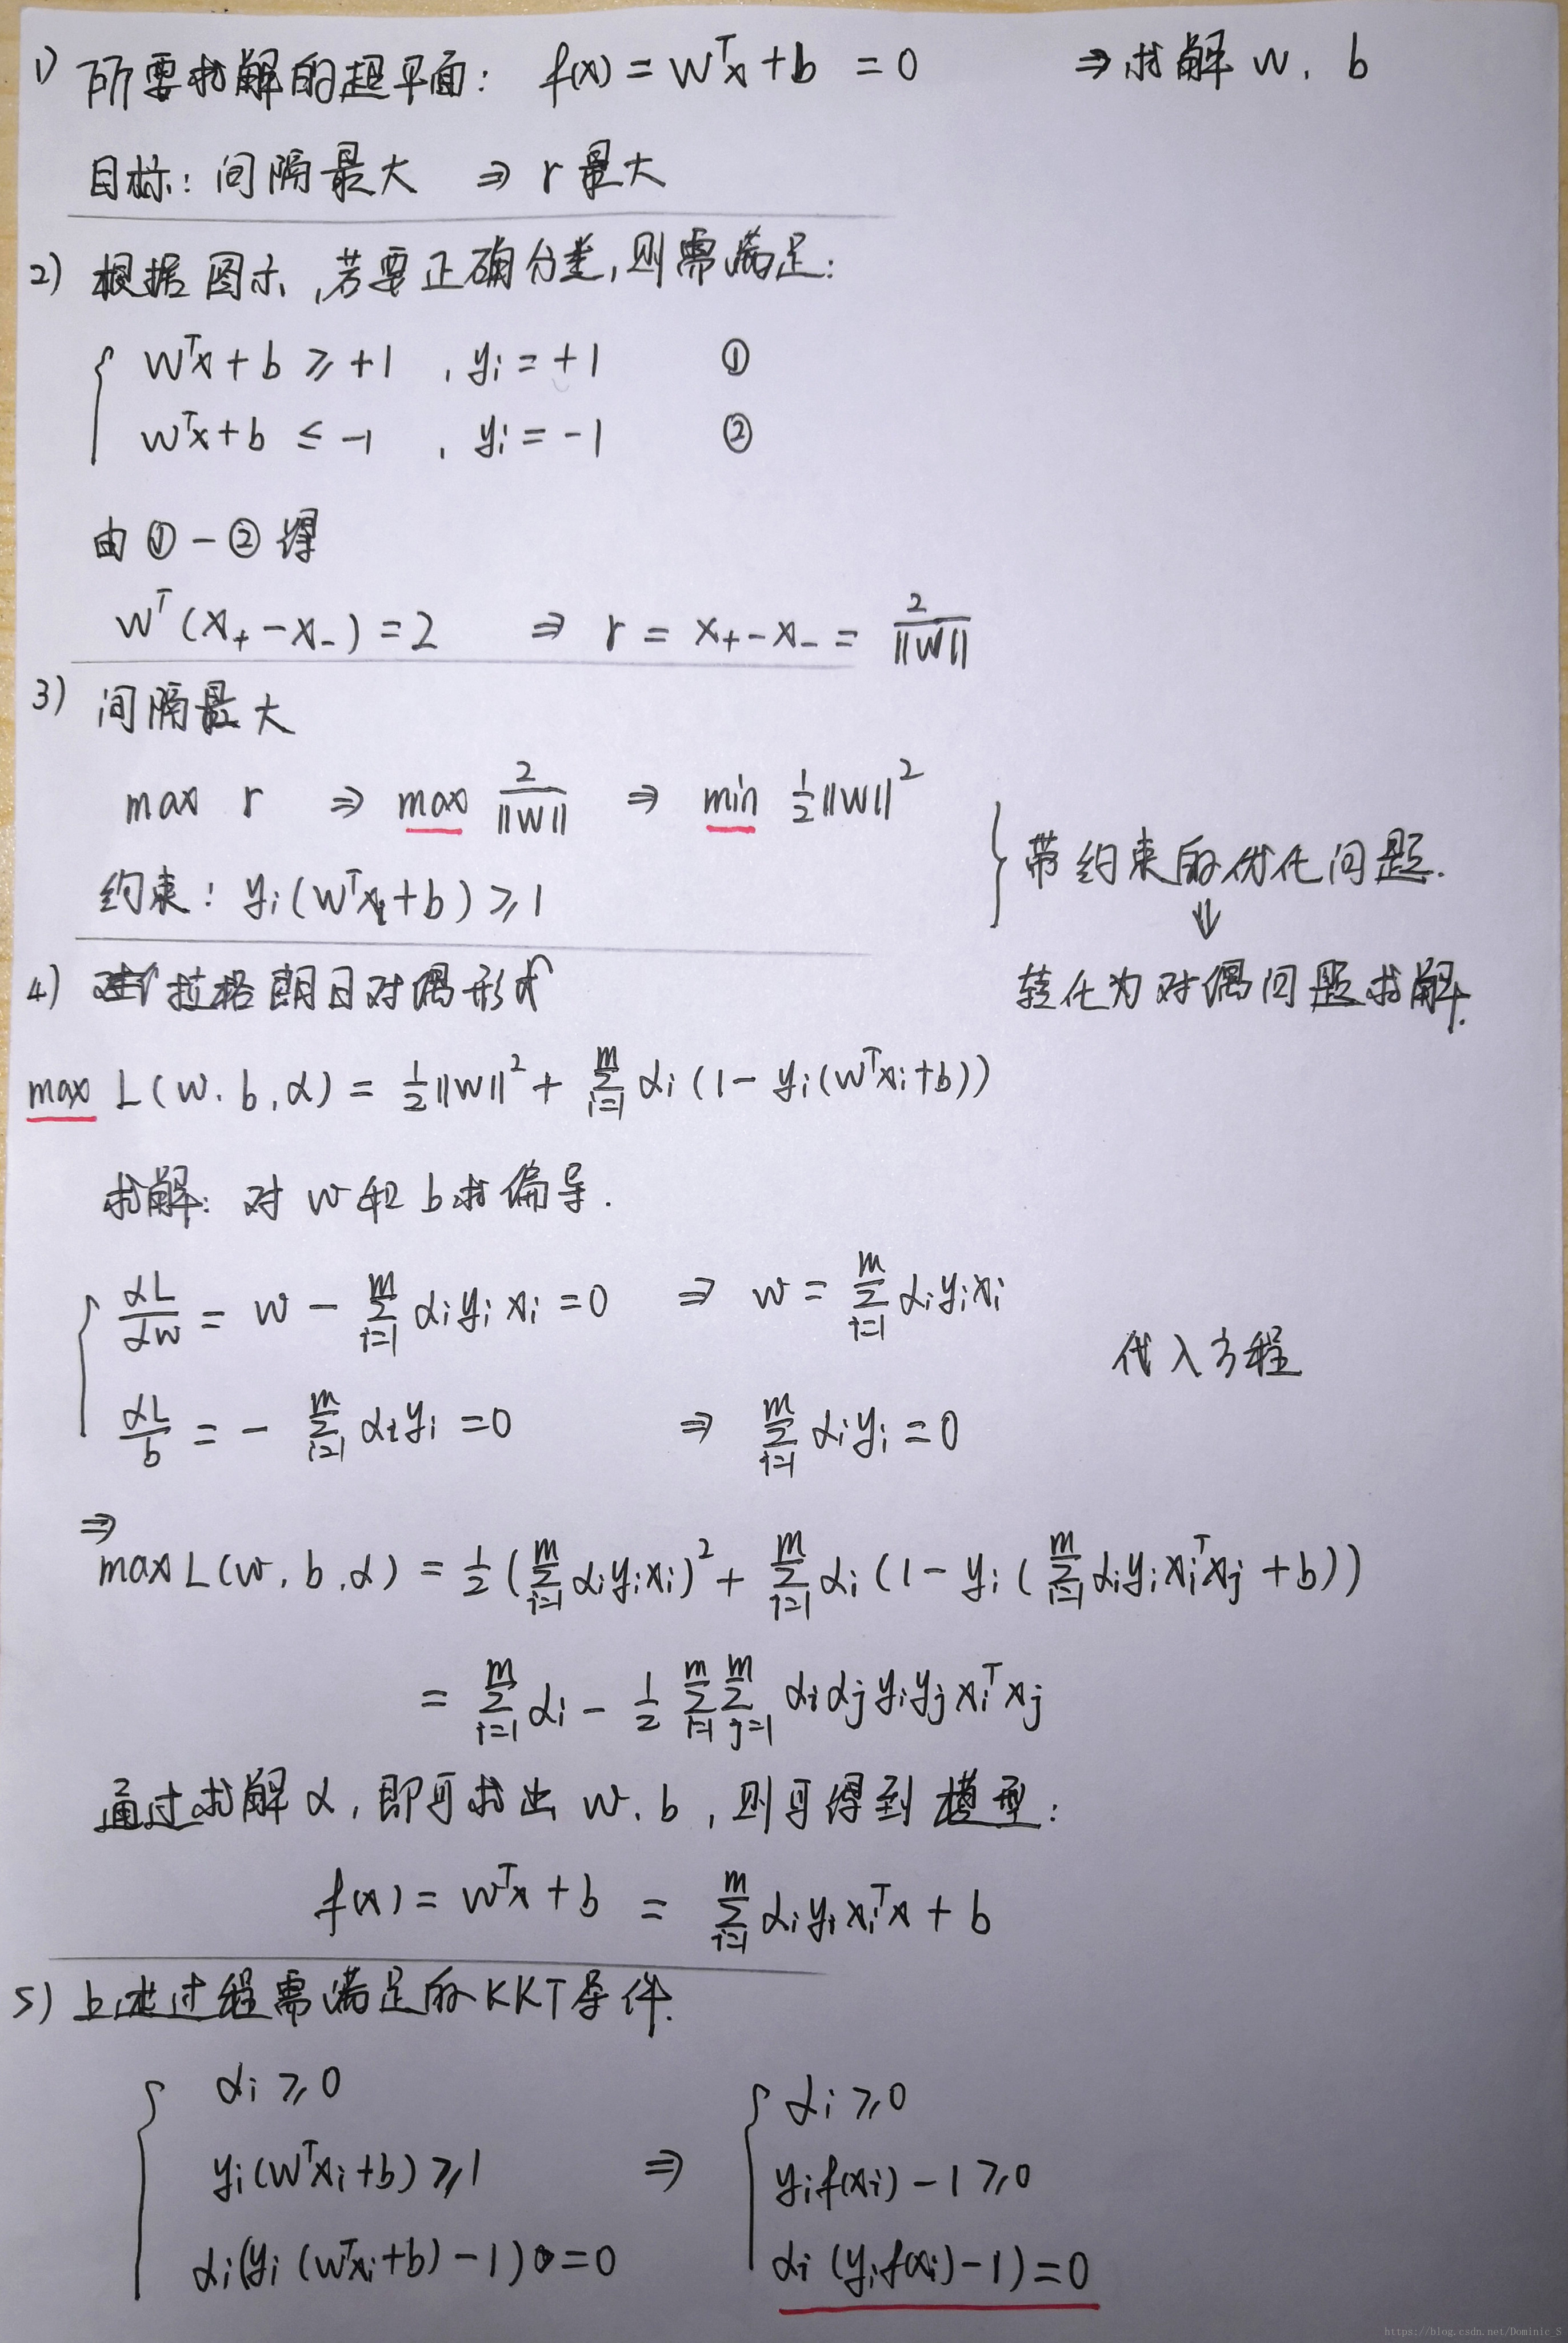 1) 所要求解的超平面: f(x) = wᵀx + b = 0 ⇒ 求解 w, b
目标: 间隔最大 ⇒ r 最大
2) 根据图示,若要正确分类,则需满足:
{ wᵀx + b ≥ +1 , yi = +1 ①
wᵀx + b ≤ -1 , yi = -1 ②
由 ① - ② 得
wᵀ(x₊ - x₋) = 2 ⇒ r = x₊ - x₋ = 2/||w||
3) 间隔最大
max r ⇒ max 2/||w|| ⇒ min ½||w||²
约束: yi(wᵀxi + b) ≥ 1
} 带约束的优化问题.
⇓
转化为对偶问题求解.
4) 拉格朗日对偶形式
max L(w, b, α) = ½||w||² + Σ_{i=1}^{m} αi (1 - yi(wᵀxi + b))
求解: 对 w 和 b 求偏导.
{ αL/αw = w - Σ_{i=1}^{m} αi yi xi = 0 ⇒ w = Σ_{i=1}^{m} αi yi xi
αL/b = - Σ_{i=1}^{m} αi yi = 0 ⇒ Σ_{i=1}^{m} αi yi = 0
代入方程
⇒
max L(w, b, α) = ½(Σ_{i=1}^{m} αi yi xi)² + Σ_{i=1}^{m} αi (1 - yi (Σ_{i=1}^{m} αi yi xiᵀxj + b))
= Σ_{i=1}^{m} αi - ½ Σ_{i=1}^{m} Σ_{j=1}^{m} αi αj yi yj xiᵀxj
通过求解 α, 即可求出 w, b, 则可得到模型:
f(x) = wᵀx + b = Σ_{i=1}^{m} αi yi xiᵀx + b
5) 上述过程需满足的KKT条件.
{ αi ≥ 0 ⇒ { αi ≥ 0
yi(wᵀxi + b) ≥ 1 yi f(xi) - 1 ≥ 0
αi(yi (wᵀxi + b) - 1) = 0 αi (yi f(xi) - 1) = 0
https://blog.csdn.net/Dominic_S